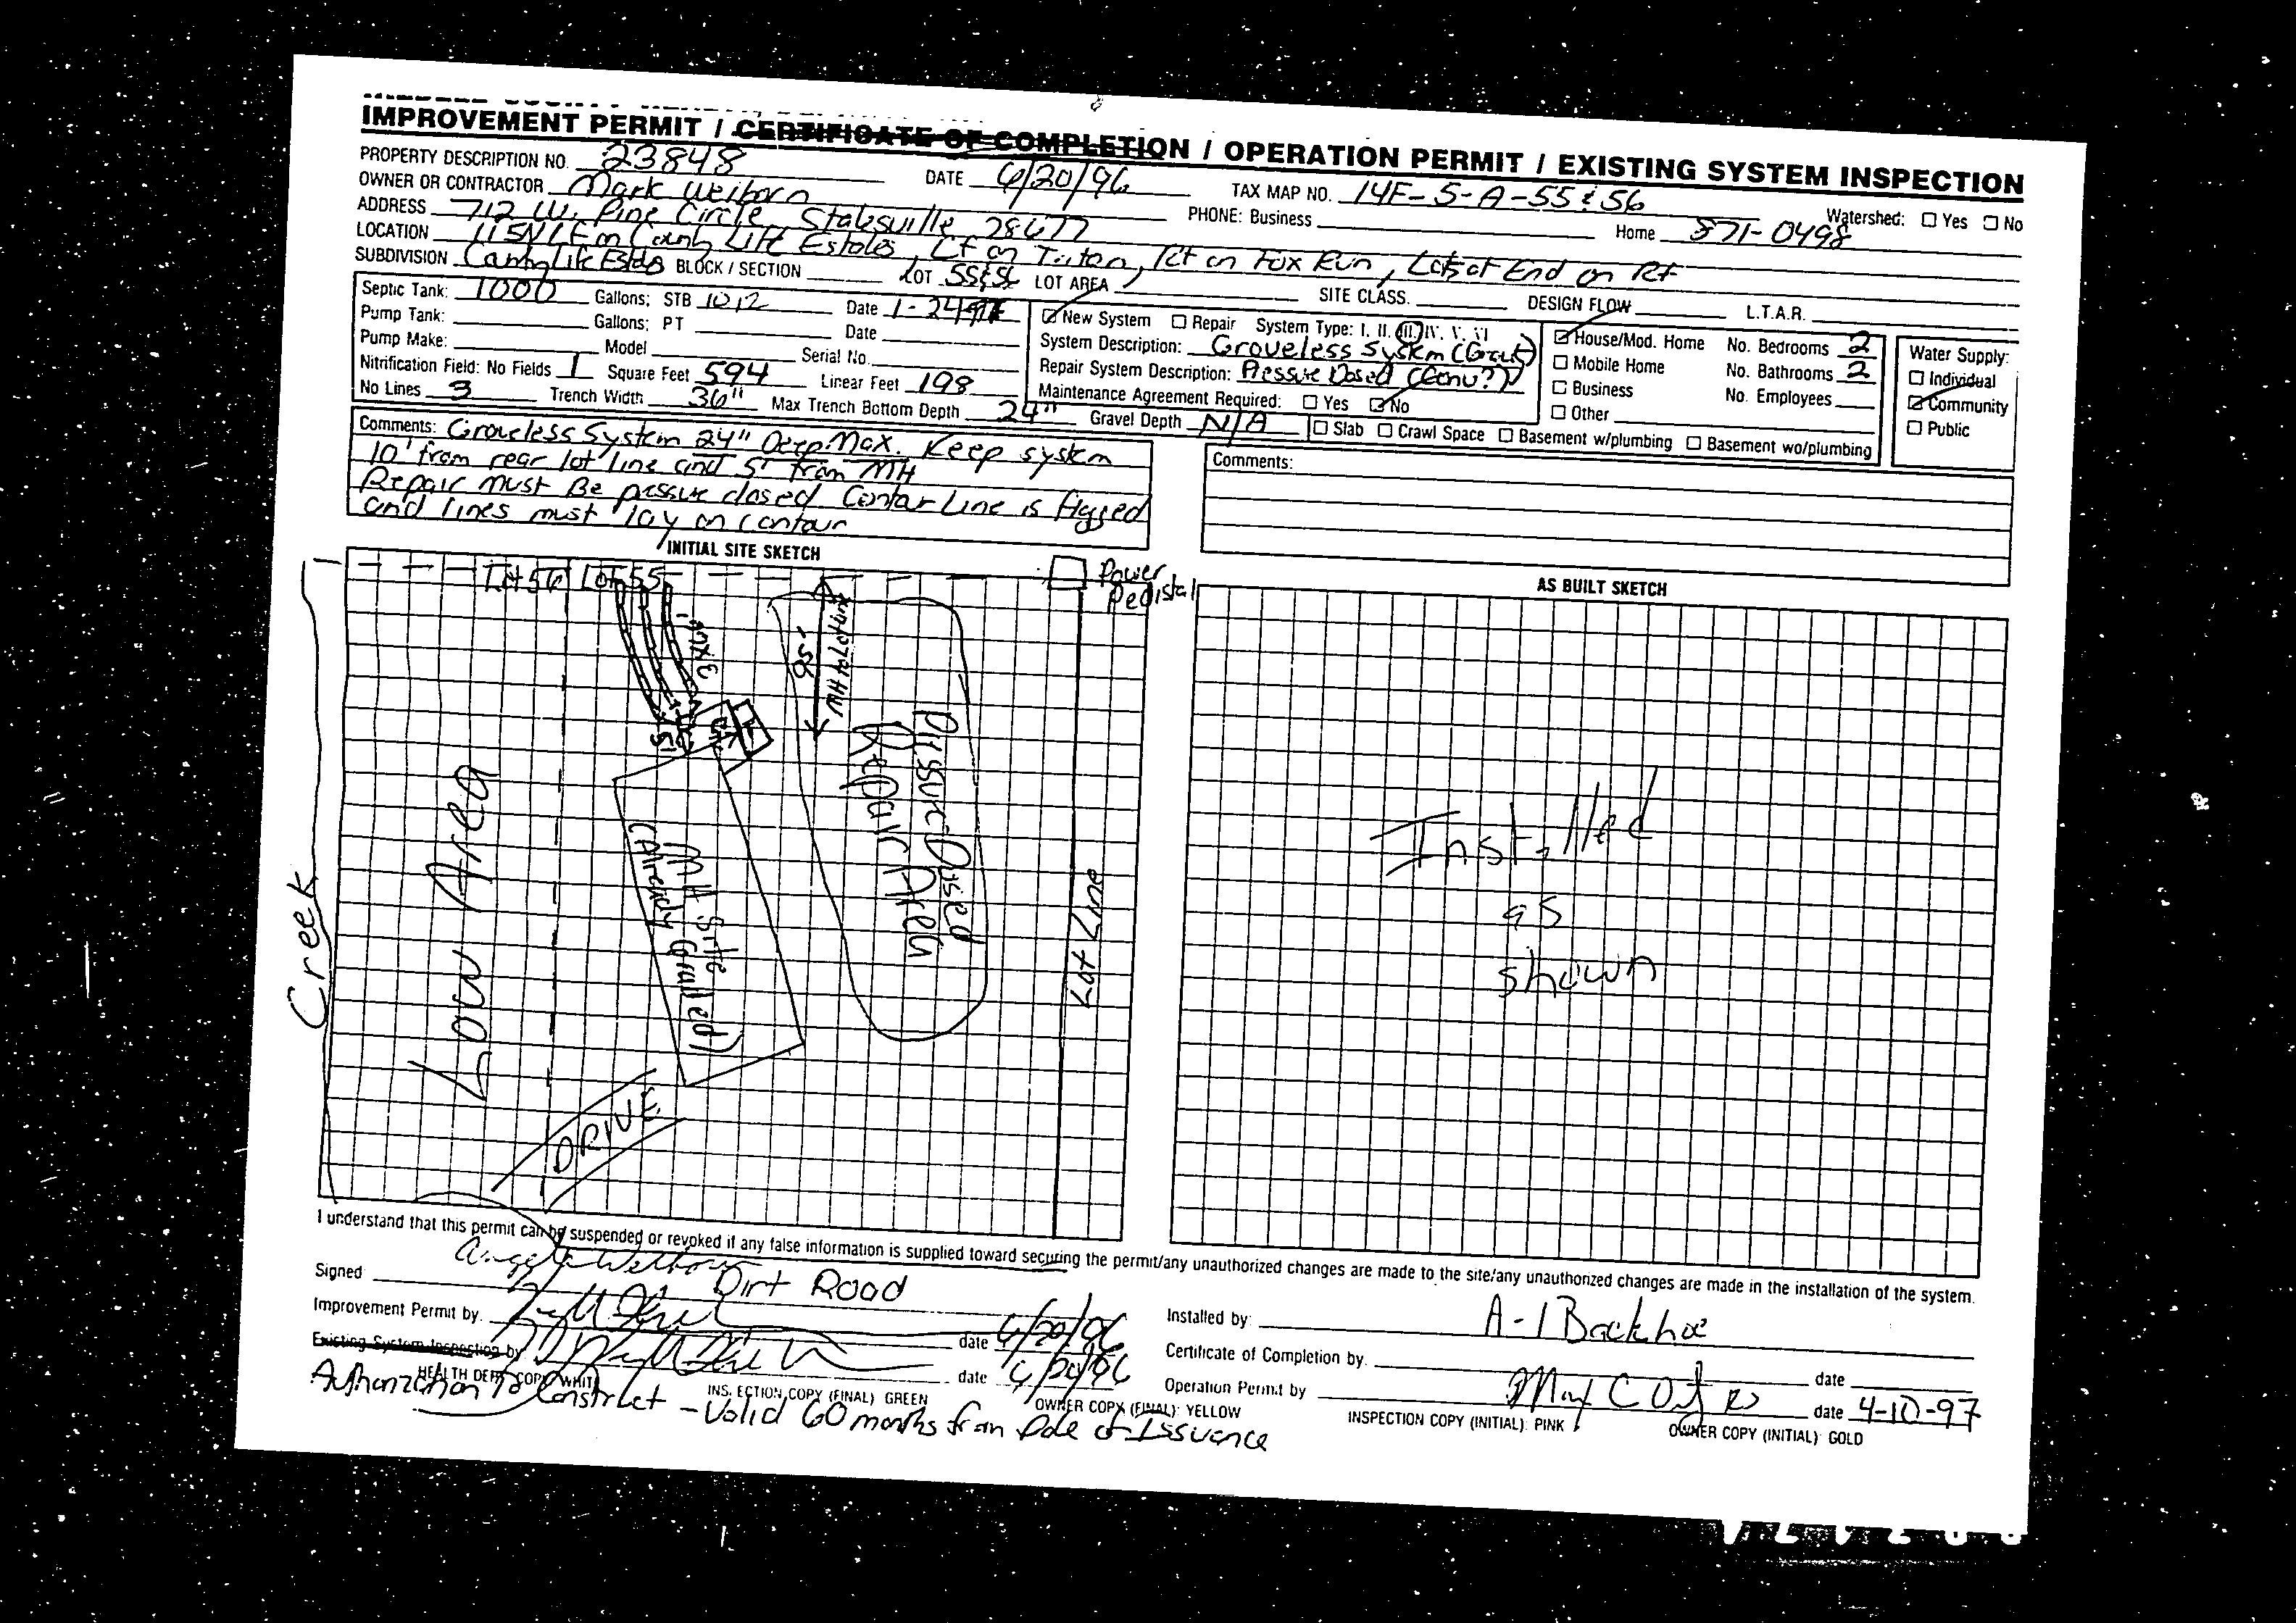 IMPROVEMENT PERMIT / CERTIFICATE OF COMPLETION / OPERATION PERMIT / EXISTING SYSTEM INSPECTION
PROPERTY DESCRIPTION NO. 23848 DATE 6/20/96 TAX MAP NO. 14F-5-A-55 & 56 Watershed: ☐ Yes ☐ No
OWNER OR CONTRACTOR Mark Welborn PHONE: Business Home 871-0498
ADDRESS 712 W. Pine Circle Statesville 28677
LOCATION 115N Lt on County Life Estates, Lt on Triton, Rt on Fox Run, Lots at End on Rt
SUBDIVISION BLOCK / SECTION LOT 55&56 LOT AREA SITE CLASS. DESIGN FLOW L.T.A.R.
Septic Tank: 1000 Gallons; STB 1012 Date 1-24-97
Pump Tank: Gallons; PT Date
Pump Make: Model Serial No.
Nitrification Field: No Fields 1 Square Feet 594 Linear Feet 198
No Lines 3 Trench Width 36" Max Trench Bottom Depth 24" Gravel Depth N/A
☑ New System ☐ Repair System Type: I. II. III. IV. V. VI
System Description: Groveless System
Repair System Description: Pressure Dosed (Conv?)
Maintenance Agreement Required: ☐ Yes ☑ No
☑ House/Mod. Home No. Bedrooms 2
☐ Mobile Home No. Bathrooms 2
☐ Business No. Employees
☐ Other
☐ Slab ☐ Crawl Space ☐ Basement w/plumbing ☐ Basement wo/plumbing
Water Supply:
☐ Individual
☑ Community
☐ Public
Comments: Groveless System 24" Deep Max. Keep system
10' from rear lot line and 5' from MH
Repair must Be pressure dosed. Contour Line is flagged
and lines must lay on contour
Comments:
INITIAL SITE SKETCH
Lot 56 Lot 55
Power
Pedistal
3x66'
95'
15'
Pressure Dosed
Repair Area
MH Site
(Already Graded)
Low Area
Creek
Lot Line
DRIVE
AS BUILT SKETCH
Installed
as
shown
I understand that this permit can be suspended or revoked if any false information is supplied toward securing the permit/any unauthorized changes are made to the site/any unauthorized changes are made in the installation of the system.
Signed Angela Welborn
Dirt Road
Improvement Permit by. date 6/20/96
Existing System Inspection by date 6/20/96
Installed by: A-1 Backhoe
Certificate of Completion by. date
Operation Permit by date 4-10-97
HEALTH DEPT COPY WHITE INS. ECTION COPY (FINAL) GREEN OWNER COPY (FINAL): YELLOW INSPECTION COPY (INITIAL): PINK OWNER COPY (INITIAL) GOLD
Authorization To Construct - Valid 60 months from Date of Issuance